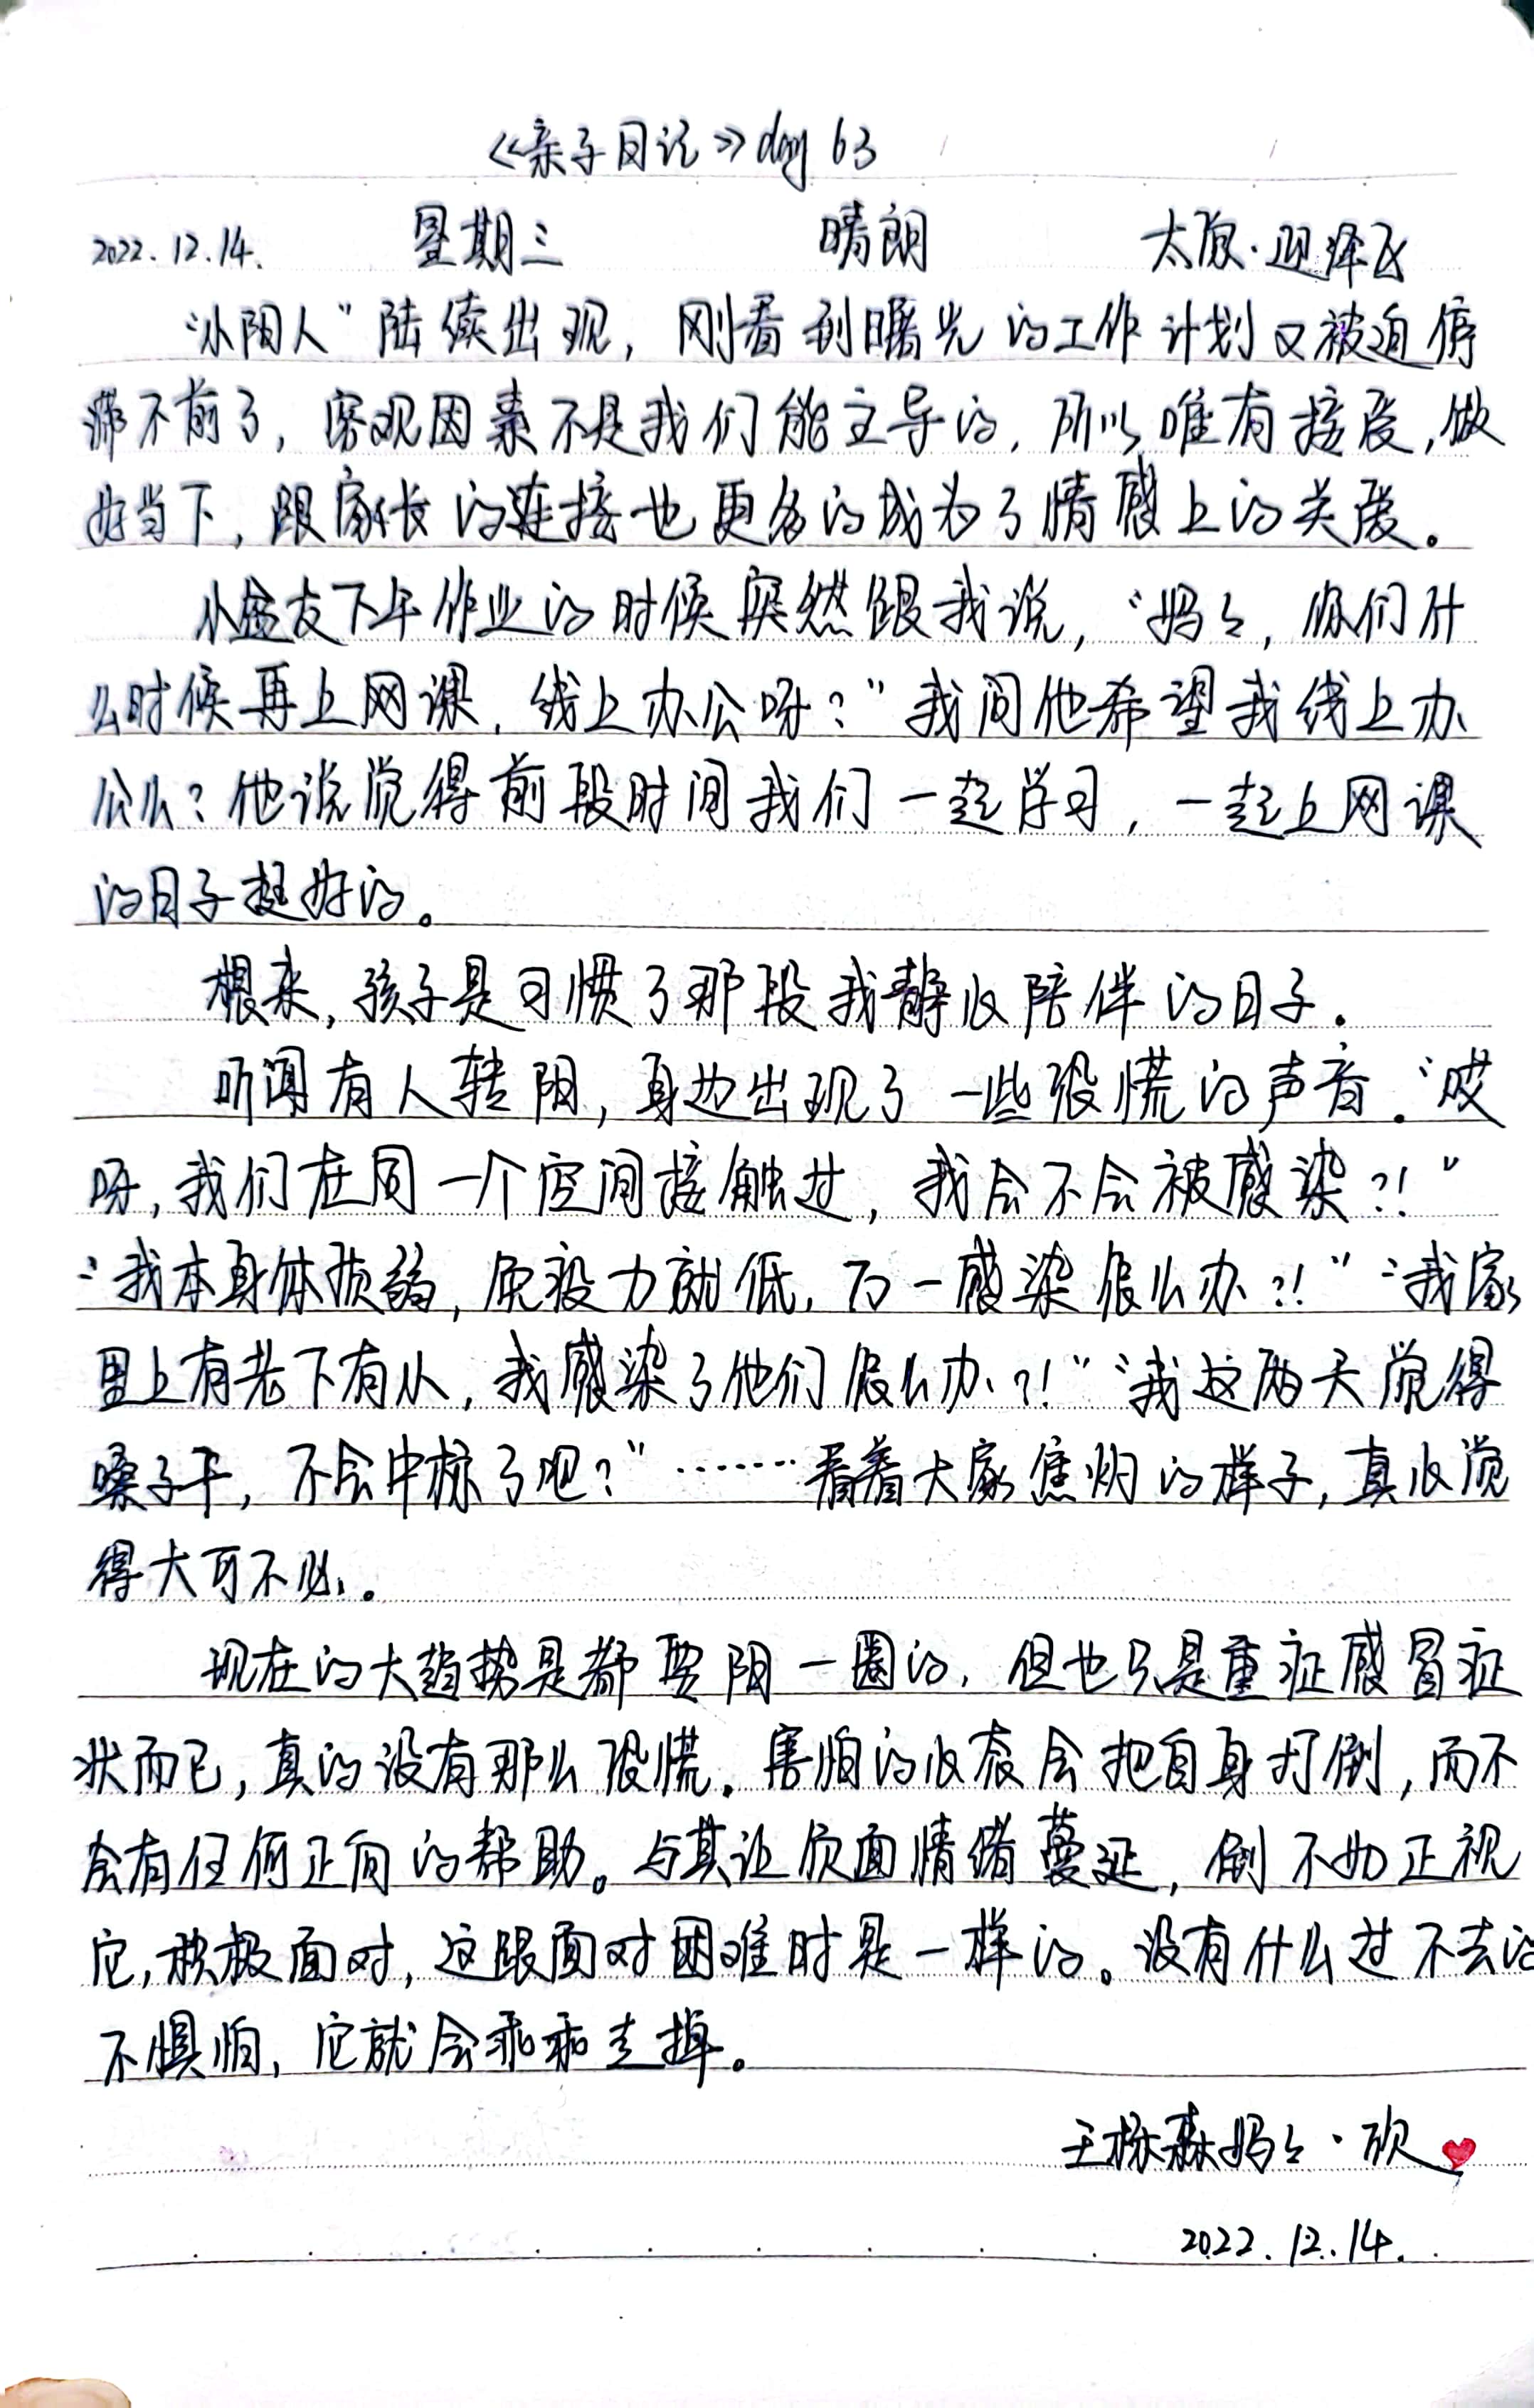 《亲子日记》day 63
2022.12.14. 星期三 晴朗 太原·迎泽区
“小阳人”陆续出现，刚看到曙光的工作计划又被迫停
滞不前了，客观因素不是我们能主导的，所以唯有接受，做
好当下，跟家长的连接也更多的成为了情感上的关爱。
小盆友下午作业的时候突然跟我说，“妈々，你们什
么时候再上网课，线上办公呀？”我问他希望我线上办
公么？他说觉得前段时间我们一起学习，一起上网课
的日子挺好的。
想来，孩子是习惯了那段我静心陪伴的日子．
听闻有人转阳，身边出现了一些恐慌的声音．“哎
呀，我们在同一个空间接触过，我会不会被感染？！”
“我本身体质弱，免疫力就低，万一感染怎么办？！”“我家
里上有老下有小，我感染了他们怎么办？！”“我这两天觉得
嗓子干，不会中标了吧？”……看着大家焦灼的样子，真心觉
得大可不必。
现在的大趋势是都要阳一圈的，但也只是重症感冒症
状而已，真的没有那么恐慌．害怕的心态会把自身打倒，而不
会有任何正向的帮助。与其让负面情绪蔓延，倒不如正视
它，积极面对，这跟面对困难时是一样的。没有什么过不去的
不惧怕，它就会乖乖走掉。
王栎森妈々·欣
2022.12.14.